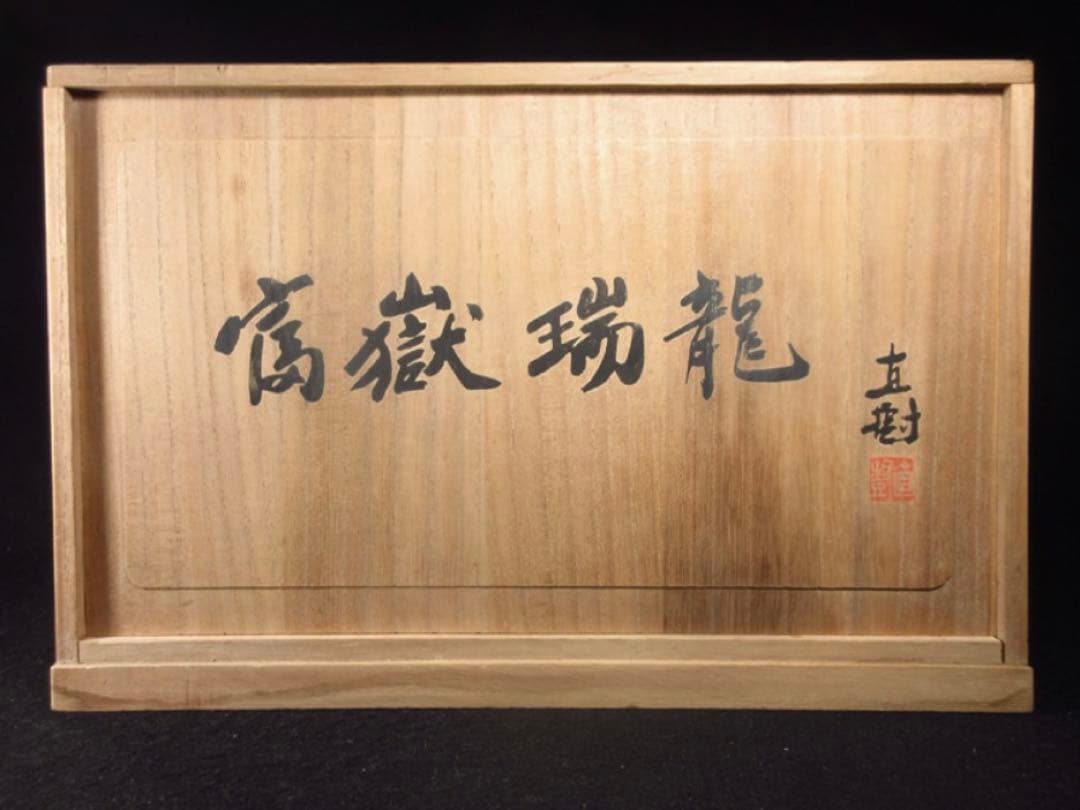 富嶽瑞龍
直樹